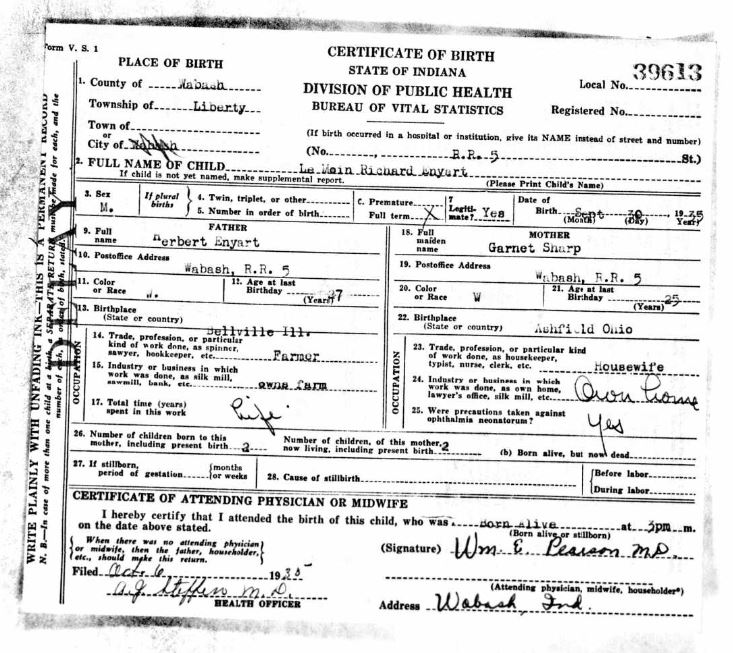 Form V. S. 1
CERTIFICATE OF BIRTH
STATE OF INDIANA
DIVISION OF PUBLIC HEALTH
BUREAU OF VITAL STATISTICS
39613
Local No.
Registered No.
PLACE OF BIRTH
1. County of Wabash
Township of Liberty
Town of
or
City of Wabash
(If birth occurred in a hospital or institution, give its NAME instead of street and number)
(No. , R.R. 5 St.)
2. FULL NAME OF CHILD Le Moin Richard Enyart
If child is not yet named, make supplemental report. (Please Print Child's Name)
3. Sex M.
If plural births
4. Twin, triplet, or other
5. Number in order of birth
C. Premature
Full term X
7 Legiti-mate? Yes
Date of Birth Sept 30, 1935
(Month) (Day) Year)
FATHER
9. Full name Herbert Enyart
10. Postoffice Address
Wabash, R.R. 5
11. Color or Race W.
12. Age at last Birthday 27
(Years)
13. Birthplace
(State or country)
Bellville Ill.
OCCUPATION
14. Trade, profession, or particular
kind of work done, as spinner,
sawyer, bookkeeper, etc. Farmer
15. Industry or business in which
work was done, as silk mill,
sawmill, bank, etc. owns farm
17. Total time (years)
spent in this work Life
MOTHER
18. Full maiden name Garnet Sharp
19. Postoffice Address
Wabash, R.R. 5
20. Color or Race W
21. Age at last Birthday 25
(Years)
22. Birthplace
(State or country) Ashfield Ohio
OCCUPATION
23. Trade, profession, or particular kind
of work done, as housekeeper,
typist, nurse, clerk, etc. Housewife
24. Industry or business in which
work was done, as own home,
lawyer's office, silk mill, etc. Own home
25. Were precautions taken against
ophthalmia neonatorum? Yes
26. Number of children born to this
mother, including present birth 2
Number of children, of this mother,
now living, including present birth 2
(b) Born alive, but now dead
27. If stillborn,
period of gestation {months or weeks
28. Cause of stillbirth
Before labor
During labor
CERTIFICATE OF ATTENDING PHYSICIAN OR MIDWIFE
I hereby certify that I attended the birth of this child, who was Born alive at 3pm m.
on the date above stated. (Born alive or stillborn)
{When there was no attending physician
or midwife, then the father, householder,
etc., should make this return.}
(Signature) Wm. E. Pearson M.D.
Filed Oct 6 1935
(Attending physician, midwife, householder*)
A.J. Steffen M.D.
HEALTH OFFICER
Address Wabash, Ind.
WRITE PLAINLY WITH UNFADING INK—THIS IS A PERMANENT RECORD
N. B.—In case of more than one child at a birth, a SEPARATE RETURN must be made for each, and the
number of each, in order of birth, stated.